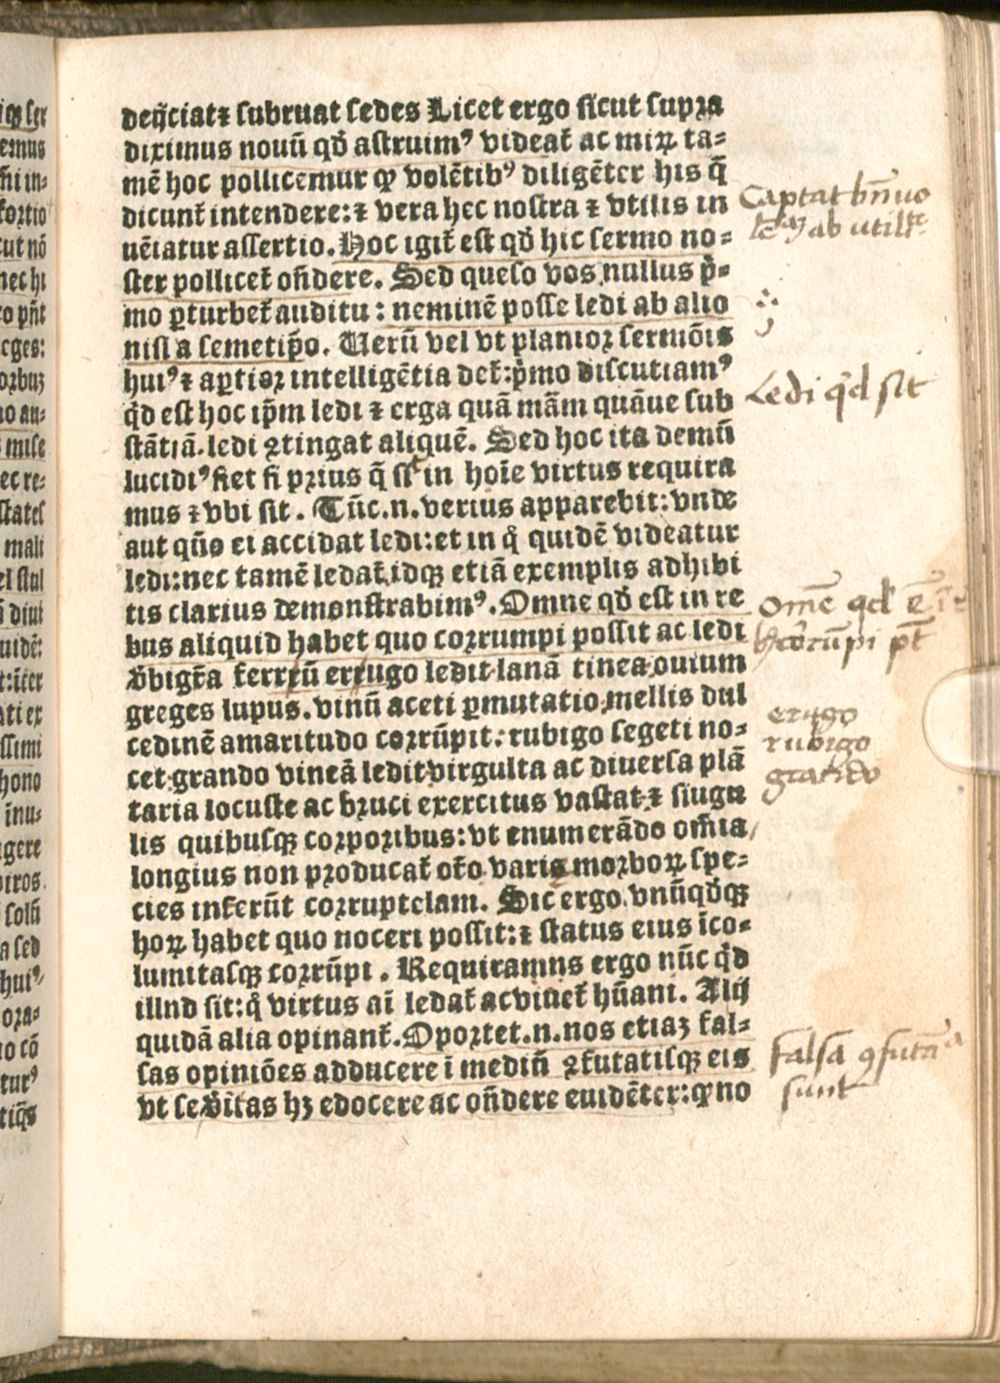 deijciat ⁊ subruat sedes Licet ergo sicut supra
diximus nouū qď astruimꝰ videat̄ ac miꝝ ta-
mē hoc pollicemur ꝙ volētibꝰ diligēter his q̄
dicunt̄ intendere: ⁊ vera hec nostra ⁊ vtilis in
uēiatur assertio. Hoc igit̄ est qď hic sermo no-
ster pollicet̄ oñdere. Sed queso vos nullus p̄-
mo ꝑturbet̄ auditu: neminē posse ledi ab alio
nisi a semetip̄o. Uerū vel vt planior sermōis
huiꝰ ⁊ aꝑtior intelligētia det̄: p̄mo discutiamꝰ
qd̄ est hoc ip̄m ledi ⁊ erga quā mām quāue sub
stātiā. ledi ꝯtingat aliquē. Sed hoc ita demū
lucidiꝰ fiet si prius q̄ sit in hoīe virtus requira
mus ⁊ vbi sit. Tūc .n. verius apparebit: vnde
aut qñо ei accidat ledi: et in q̊ quidē videatur
ledi: nec tamē ledat̄. idqꝫ etiā exemplis adhibi
tis clarius demonstrabimꝰ. Omne qď est in re
bus aliquid habet quo corrumpi possit ac ledi
v̄bigr̄a ferrū errugo ledit lanā tinea ouium
greges lupus. vinū aceti ꝑmutatio, mellis dul
cedinē amaritudo corrūpit: rubigo segeti no-
cet. grando vineā ledit virgulta ac diuersa plā
taria locuste ac bruci exercitus vastat ⁊ singu
lis quibusqꝫ corporibus: vt enumerādo om̄ia
longius non producat̄ ot̄o varie morboꝝ spe-
cies inferūt corruptelam. Sic ergo vnūqďqꝫ
hoꝝ habet quo noceri possit: ⁊ status eius ico-
lumitasqꝫ corrūpi. Requiramus ergo nūc qd̄
illud sit: q̊ virtus aī ledat̄ ac vitiet̄ hūani. Alij
quidā alia opinant̄. Oportet .n. nos etiaꝫ fal-
sas opiniōes adducere ī mediū ꝯfutatisqꝫ eis
vt se v̄itas hꝫ edocere ac oñdere euidēter: ꝙ no
Captat bn̄uo
le ab utilite
Ledi qd̄ sit
Omē qd ē ī re
corrūpi pt̄
erugo
rubigo
grando
falsa ꝯfutāda
sunt